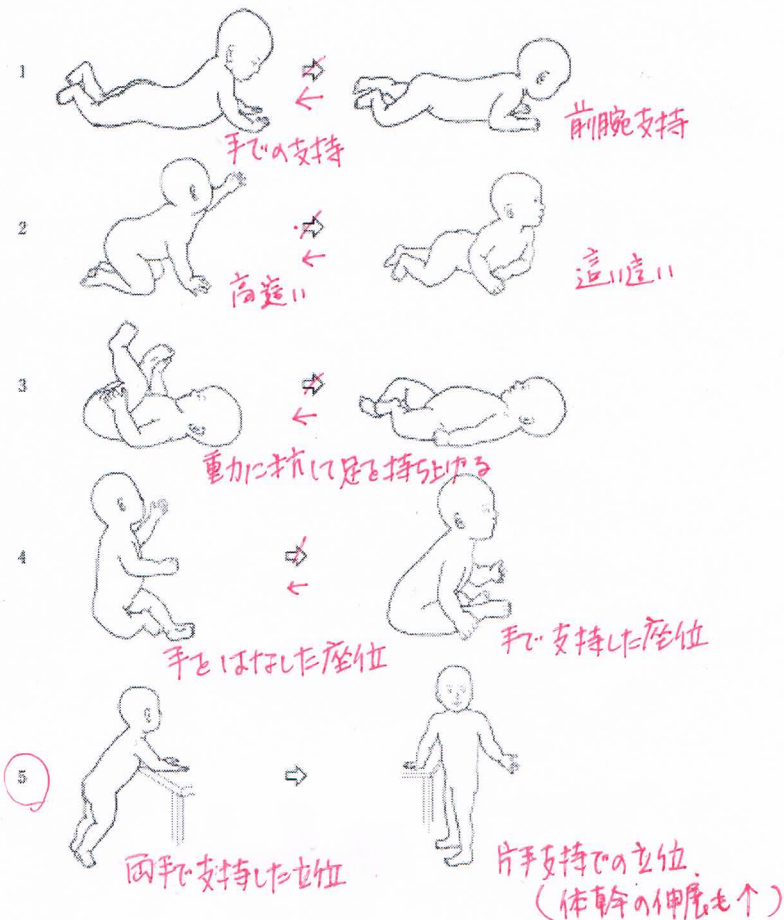 1
手での支持
前腕支持
2
高這い
這い這い
3
重力に抗して足を持ち上げる
4
手をはなした座位
手で支持した座位
5
両手で支持した立位
片手支持での立位
(体幹の伸展も↑)